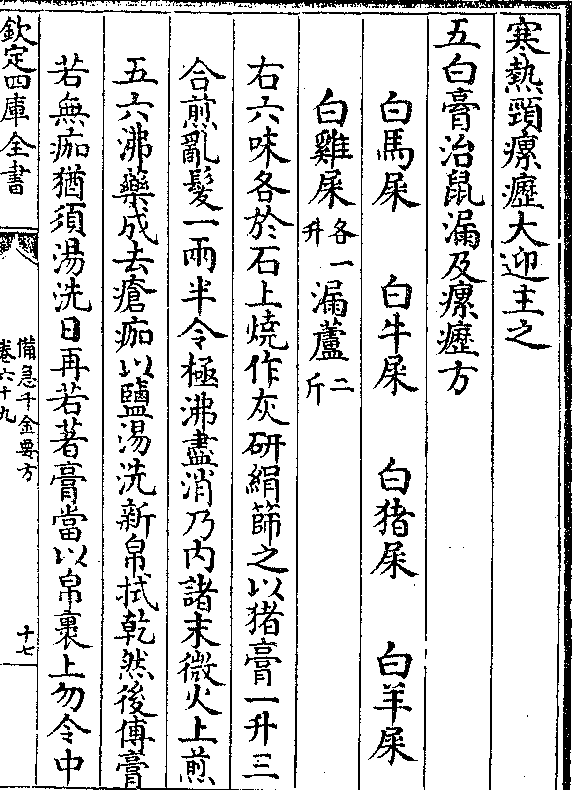 寒熱頸瘰癧大迎主之
五白膏治鼠漏及瘰癧方
白馬屎 白牛屎 白猪屎 白羊屎
白雞屎各一升 漏蘆二斤
右六味各於石上燒作灰研絹篩之以猪膏一升三
合煎亂髮一兩半令極沸盡消乃内諸末微火上煎
五六沸藥成去瘡痂以鹽湯洗新帛拭乾然後傅膏
若無痂猶須湯洗日再若著膏當以帛裹上勿令中
欽定四庫全書
備急千金要方
卷六十九
十七